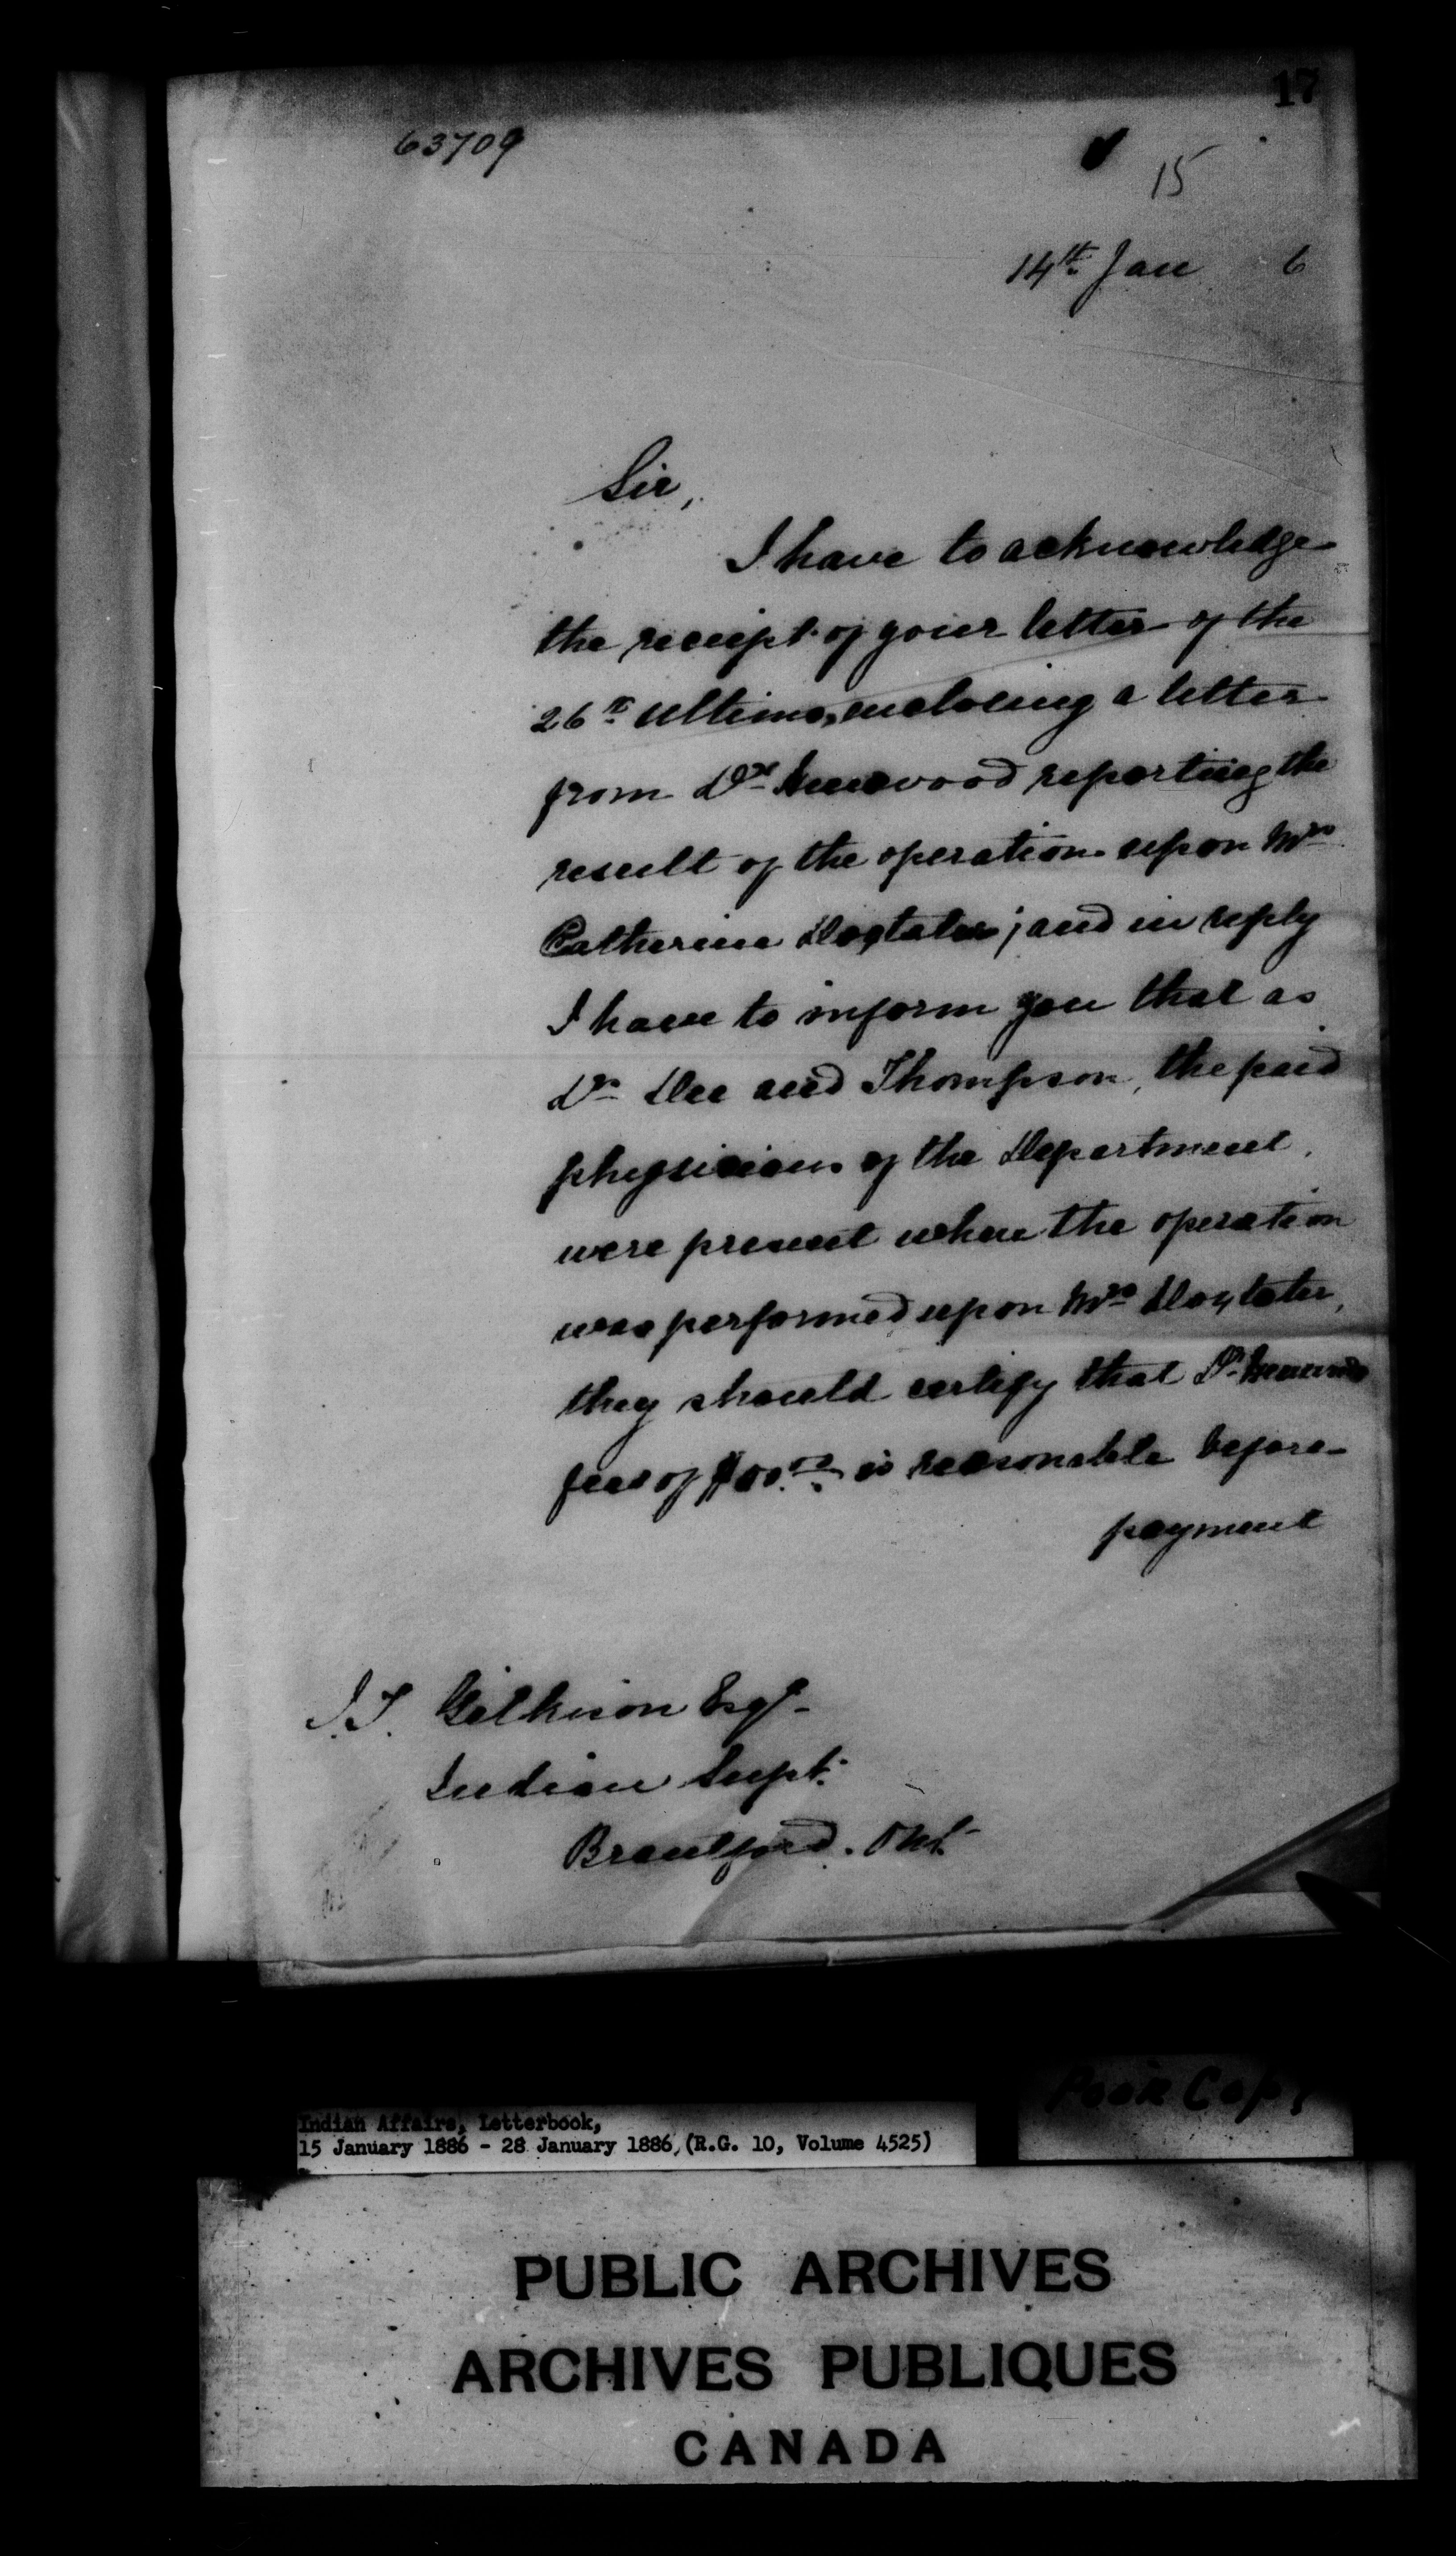 17
63709
15
14th Jan 6
Sir,
I have to acknowledge
the receipt of your letter of the
26th Ultimo, enclosing a letter
from Dr Henwood reporting the
result of the operation upon Mrs
Catherine Doxtater; and in reply
I have to inform you that as
Drs Dee and Thompson, the paid
physicians of the Department,
were present when the operation
was performed upon Mrs Doxtater,
they should certify that Dr
fees of is reasonable before
payment
J.T. Gilkison Esqr
Indian Supt.
Brantford. Ont.
Poor Copy
Indian Affairs, Letterbook,
15 January 1886 - 28 January 1886, (R.G. 10, Volume 4525)
PUBLIC ARCHIVES
ARCHIVES PUBLIQUES
CANADA